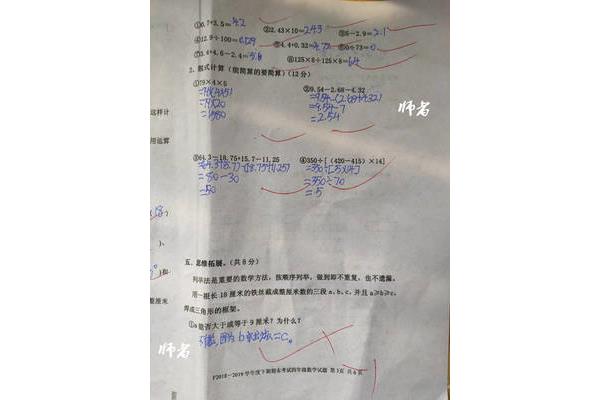 ①0.7+3.5=4.2 ②2.43×10=24.3 ③5-2.9=2.1
④12.9÷100=0.129 ⑤4.4+0.32=4.72 ⑥0÷73=0
⑦3.4+4.6-2.4=5.6 ⑧125×8÷125×8=64
2、脱式计算(能简算的要简算)(12分)
①79×4×5 ②9.54-2.68-4.32
=79×(4×5) =9.54-(2.68+4.32)
=79×20 =9.54-7
=1580 =2.54
师者
这样计
用运算
③64.3-18.75+15.7-11.25 ④350÷[(420-415)×14]
=(64.3+15.7)-(18.75+11.25) =350÷[5×14]
=80-30 =350÷70
=50 =5
五、思维拓展。(共8分)
列举法是重要的数学方法,按顺序列举,做到即不重复,也不遗漏。
用一根长18厘米的铁丝截成整厘米数的三段a、b、c,并且a≥b≥c,
整厘米
焊成三角形的框架。
①a能否大于或等于9厘米?为什么?
不能,因为b
师者
2018-2019学年度下期期末考试四年级数学试题 第3页 共6页